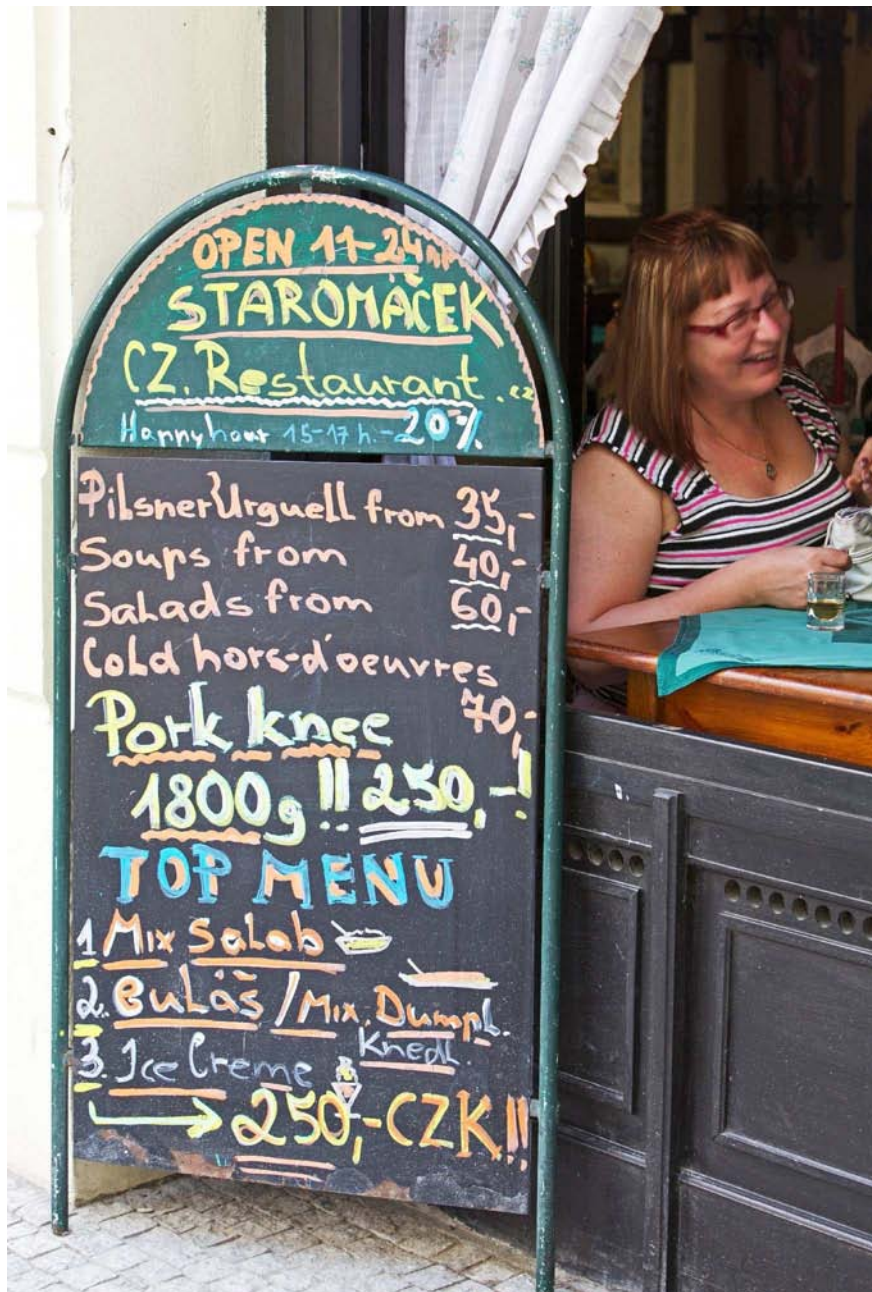 OPEN 11-24
STAROMÁČEK
CZ. Restaurant .cz
Happy hour 15-17 h. -20%
Pilsner Urquell from 35,-
Soups from 40,-
Salads from 60,-
Cold hors-d'oeuvres
70,-
Pork knee
1800g !! 250,-!
TOP MENU
1 Mix Salab
2. Guláš / Mix. Dumpl.
Knedl.
3. Ice Creme
250,- CZK!!